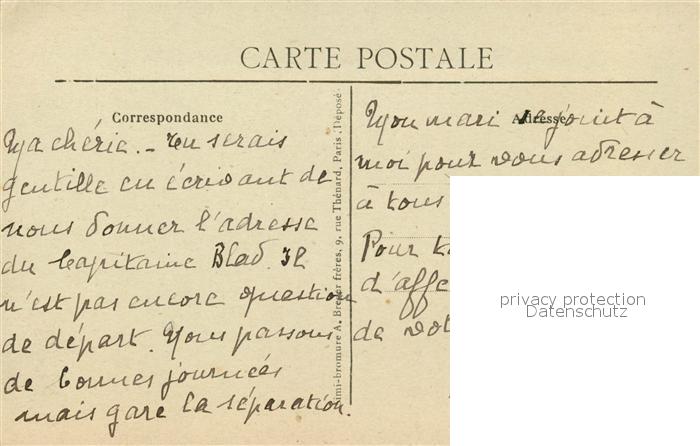 CARTE POSTALE
Correspondance
Ma chérie. - Tu serais
gentille en écrivant de
nous donner l'adresse
du Capitaine Blad. Il
n'est pas encore question
de départ. Nous passons
de bonnes journées
mais gare la séparation.
imi-bromure A. Breger frères, 9, rue Thénard, Paris. Déposé
Adresse
Mon mari se joint à
moi pour vous adresser
à tous
Pour
d'affe
de vot
privacy protection
Datenschutz